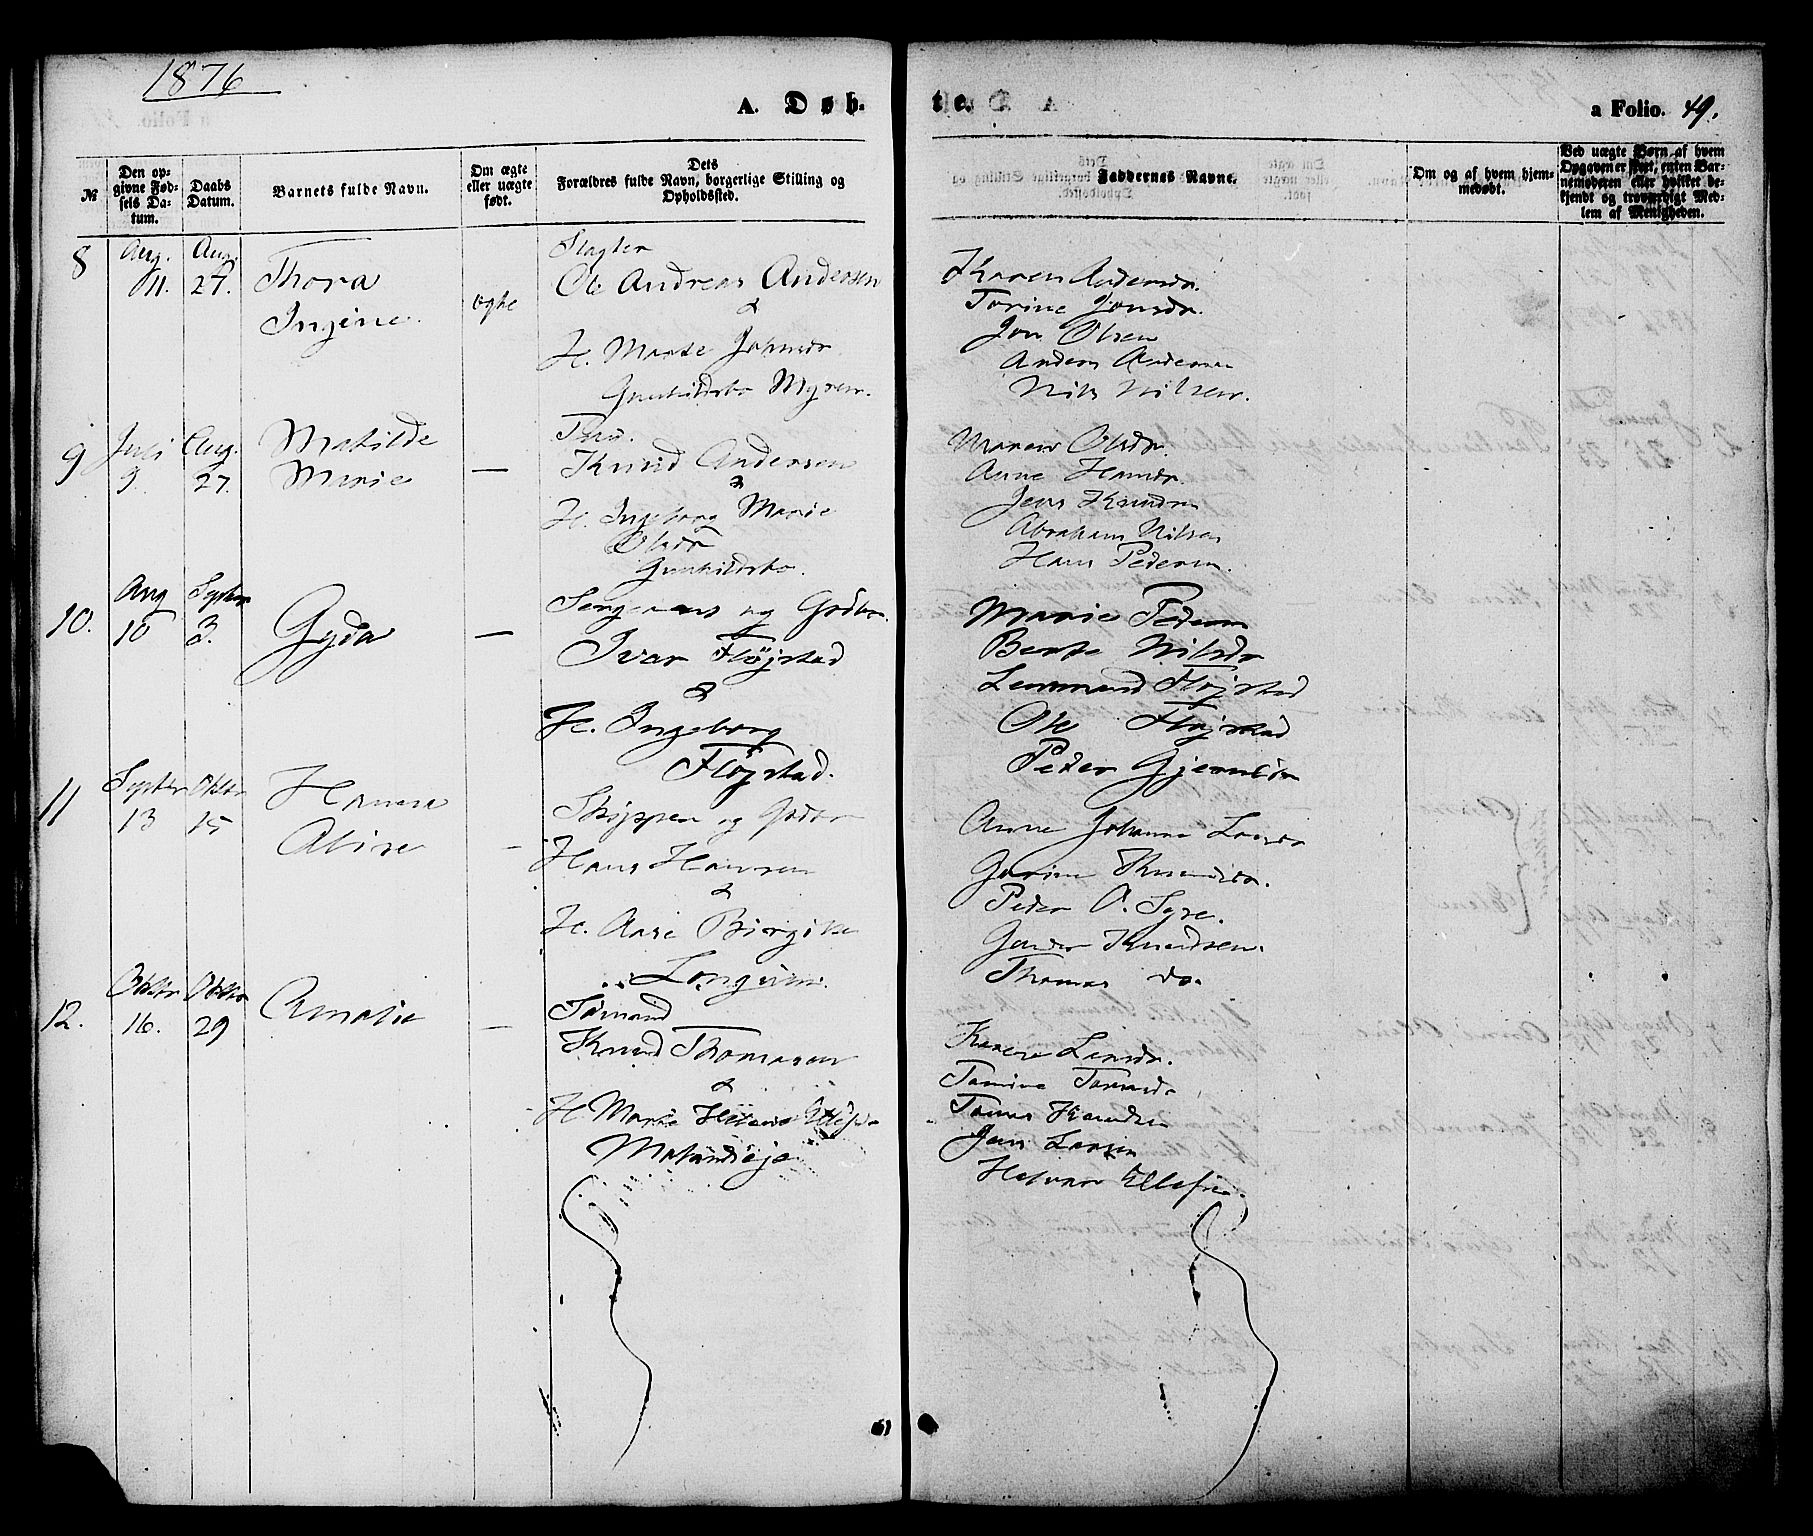 1876
A. Døb-
te.
a Folio. 49.
№
Den opgivne Fødsels Datum.
Daabs Datum.
Barnets fulde Navn.
Om ægte eller uægte født.
Dets Forældres fulde Navn, borgerlige Stilling og Opholdssted.
Faddernes Navne.
Om og af hvem hjemmedøbt.
Ved uægte Børn af hvem Opgaven er skeet, enten Barnemoderen eller hvilket bekjendt og troværdigt Medlem af Menigheden.
8
Aug. 11.
Aug. 27.
Thora
Ingine
ægte
Slagter
Ole Andreas Andersen
&
H. Marte Johnsdr
Gunhildsbo Myren.
Karen Andersdr.
Torine Jonsdr.
Jon Olsen
Anders Andersen
Nils Nilsen.
9
Juli 9.
Aug. 27.
Matilde
Marie
—
Knud Andersen
&
H. Ingeborg Marie
Olsdr
Gunhildsbo.
Maren Olsdr.
Anne Hansdr.
Jens Knudsen
Abraham Nilsen
Hans Pedersen.
10.
Aug 10
Septbr 3.
Gyda
—
og Gdbr.
Ivar Fløjstad
&
H. Ingeborg
Fløjstad.
Marie Pedersen
Berte Nilsdr
Fløjstad
Ole Fløjstad
Peder
11
Septbr 13
Oktbr 15
Hanna
Alise
—
Skipper og Gdbr
Hans Hansen
&
H. Aase Birgitte
Anne Johanne Larsdr
Gurine Knudsdr.
Peder O.
Gunder Knudsen.
Thomas do.
12.
Oktbr 16.
Oktbr 29
Amalie
—
Sømand
Knud Thomasen
&
H. Marie Helene Ellefsdr
Karen Larsdr.
Tomine
Tomas Knudsen
Jens Larsen
Halvor Ellefsen.